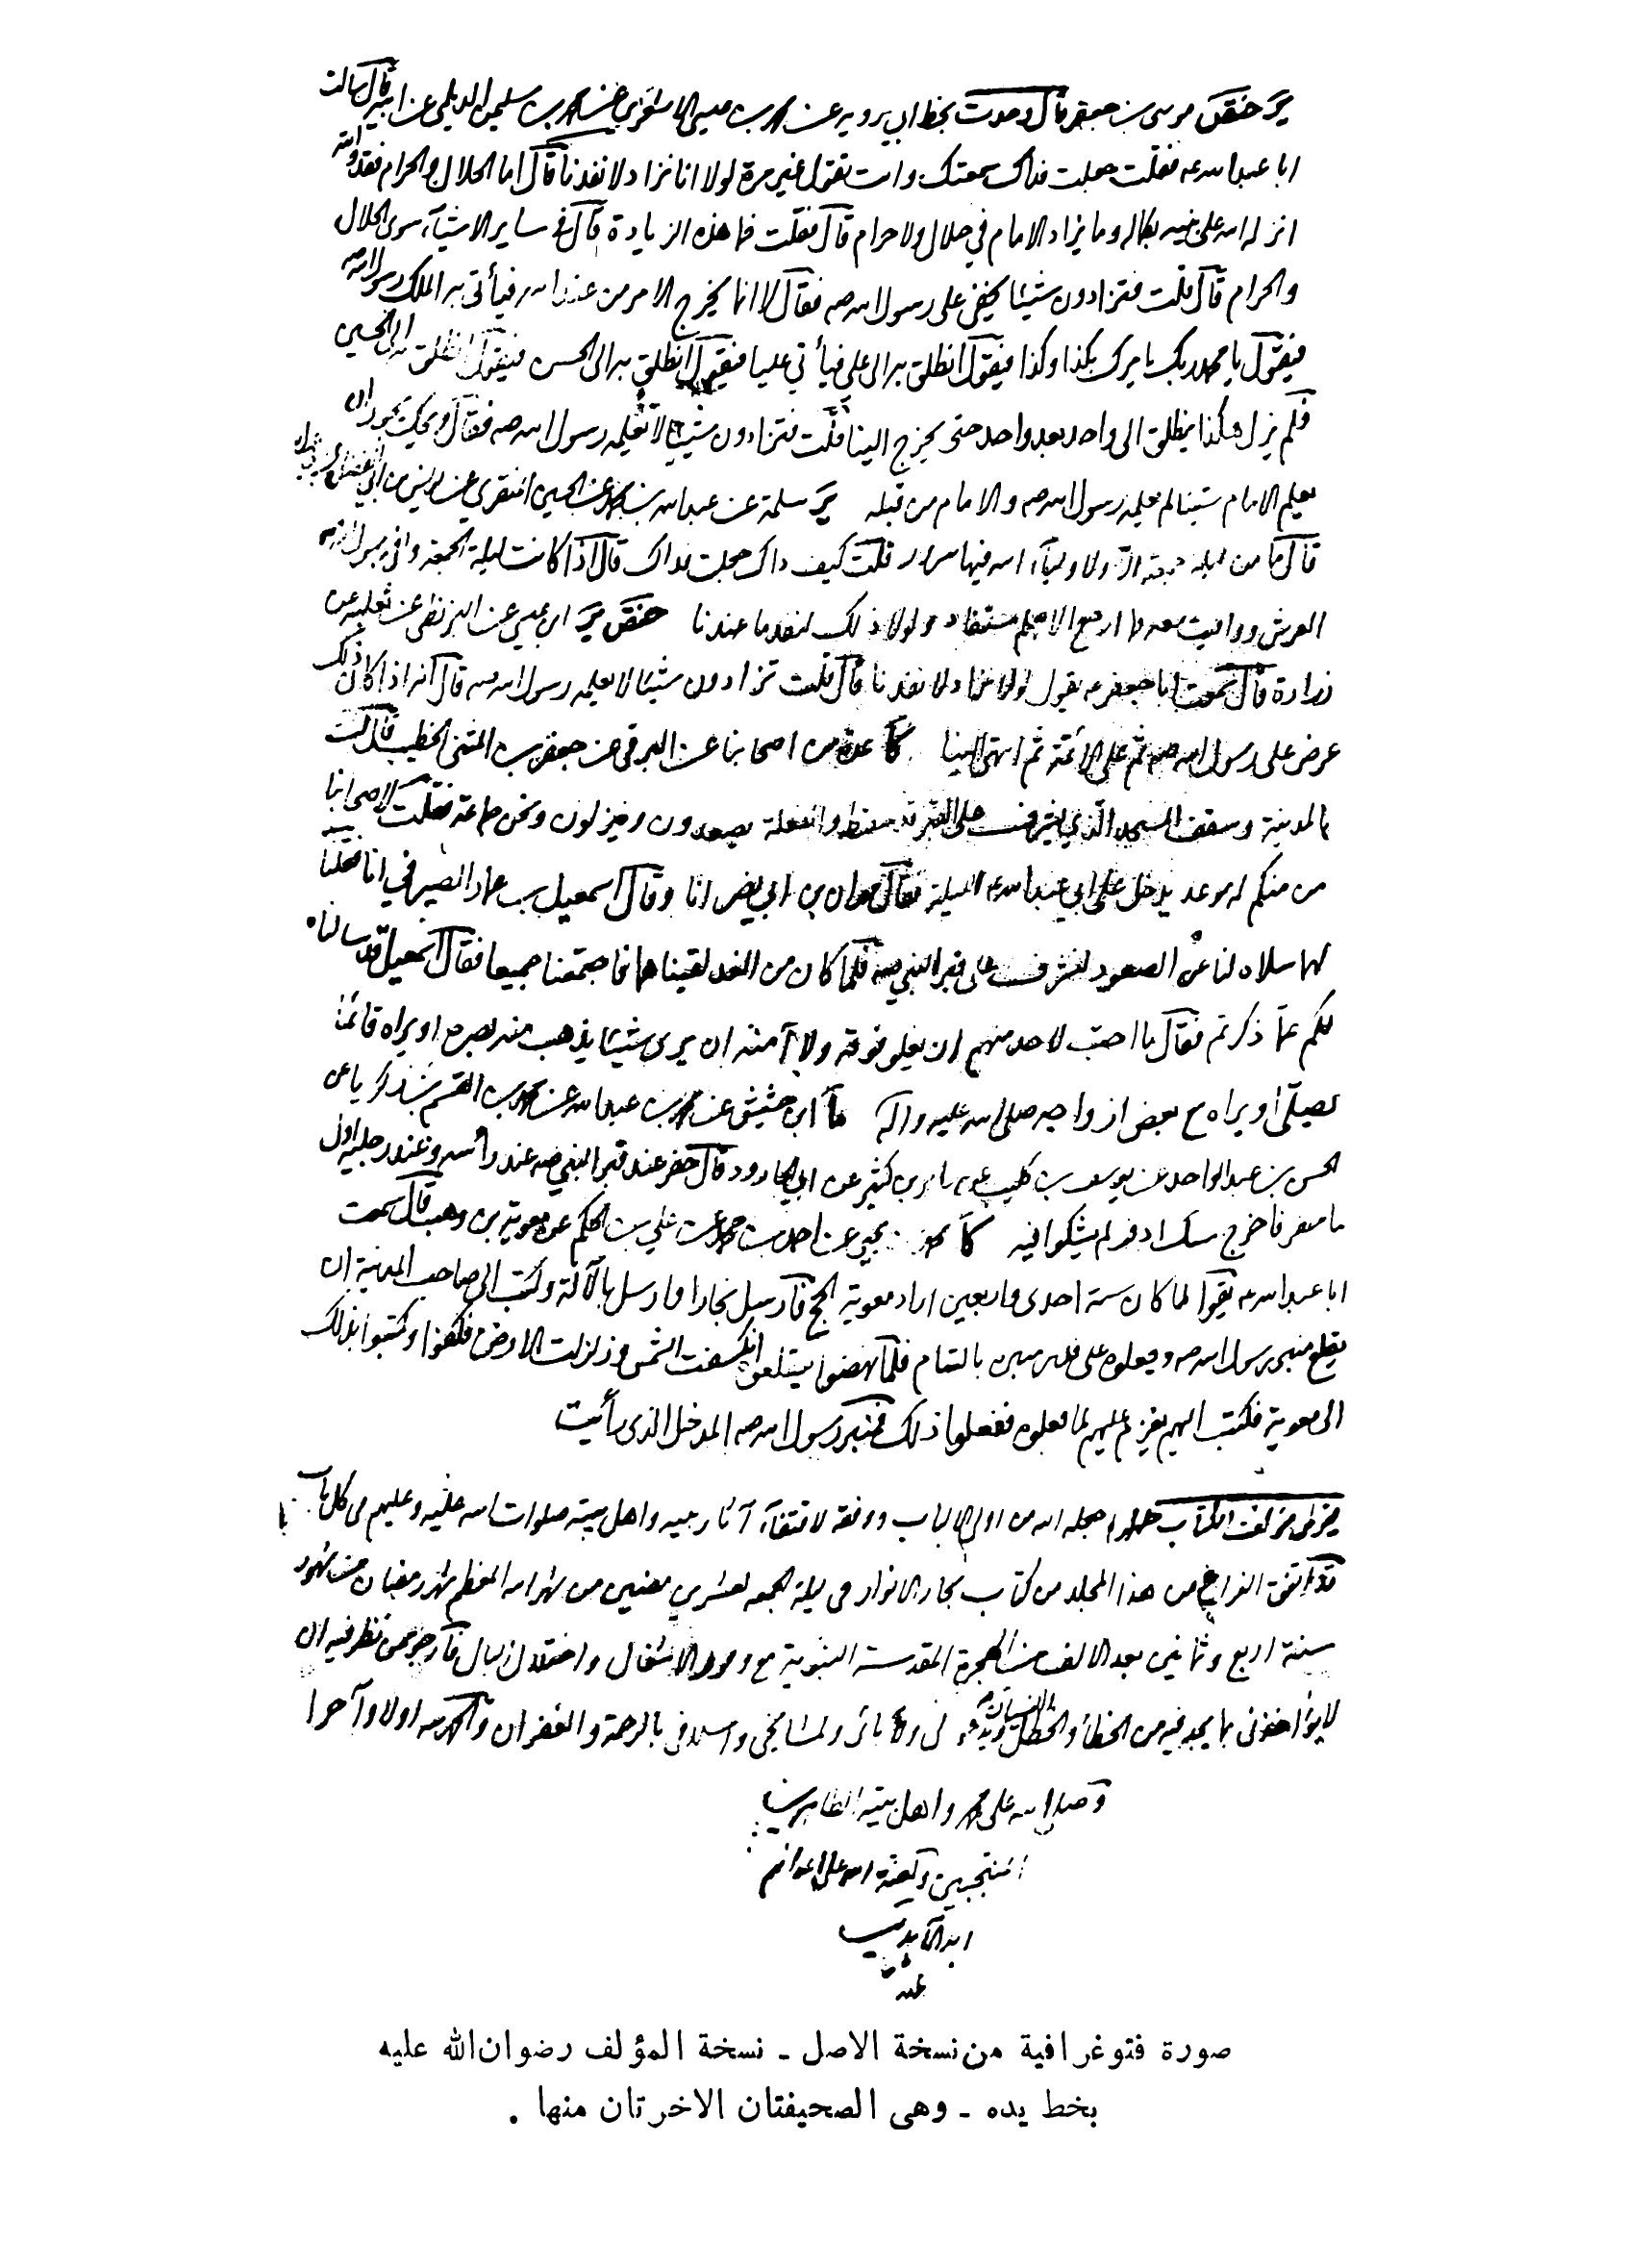 ير ختص موسى بن جعفر قال وجدت بخط ابي يرويه عن محمد بن عيسى الاشعري عن محمد بن سليمان الديلمي عن ابيه قال سالت
ابا عبد الله ع فقلت جعلت فداك سمعتك وانت تقول غير مرة لولا انا نزاد لانفدنا قال اما الحلال والحرام فقد والله
انزله الله على نبيه بكماله وما يزاد الامام في حلال ولا حرام قال فقلت فما هذه الزيادة قال في ساير الاشيآء سوى الحلال
والحرام قال قلت فتزادون شيئا يخفى على رسول الله صه فقال لا انما يخرج الامر من عند الله فيأتى به الملك رسول الله صه
فيقول يا محمد ربك يامرك بكذا وكذا فيقول انطلق به الى علي فيأتي عليا فيقول انطلق به الى الحسن فيقول انطلق به الى الحسين
فلم يزل هكذا ينطلق الى واحد بعد واحد حتى يخرج الينا قلت فتزادون شيئا لا يعلمه رسول الله صه فقال ويحك يجوز ان
يعلم الامام شيئا لم يعلمه رسول الله صه والامام من قبله ير سلمة عن عبد الله بن محمد عن الحسين المنقري عن يونس بن ابي الفضل عن ابي عبد الله
قال ما من ليلة جمعة الا ولاوليآء الله فيها سرور قلت كيف ذاك جعلت فداك قال اذا كانت ليلة الجمعة وافى رسول الله صه
العرش ووافيت معه فما ارجع الا بعلم مستفاد ولولا ذلك لنفد ما عندنا ختص ير ابن عيسى عن البزنطي عن ثعلبة عن
زرارة قال سمعت ابا جعفر ع يقول لولا نزاد لانفدنا قال قلت تزادون شيئا لا يعلمه رسول الله صه قال انه اذا كان ذلك
عرض على رسول الله صه ثم على الأئمة ثم انتهى الينا كا عدة من اصحابنا عن البرقي عن جعفر بن المثنى الخطيب قال كنت
بالمدينة وسقف المسجد الذي يشرف على القبر قد سقط والفعلة يصعدون وينزلون ونحن جماعة فقلت لاصحابنا
من منكم له موعد يدخل على ابي عبد الله ع الليلة فقال مهران بن ابي نصر انا وقال اسمعيل بن عمار الصيرفي انا فقلنا
لهما سلاه لنا عن الصعود لنشرف على قبر النبي صه فلما كان من الغد لقيناهما فاجتمعنا جميعا فقال اسمعيل قد سالناه
لكم عما ذكرتم فقال ما احب لاحد منهم ان يعلو فوقه ولا آمنه ان يرى شيئا يذهب منه بصره او يراه قائما
يصلي او يراه مع بعض ازواجه صلى الله عليه وآله ما ابن حشيش عن محمد بن عبد الله عن محمد بن القسم بن زكريا عن
الحسن بن عبد الواحد عن يوسف بن كليب عن عامر بن كثير عن ابي الجارود قال حفر عند قبر النبي صه عند رأسه وعند رجليه اول
ما حفر فاخرج مسك اذفر لم يشكوا فيه كا محمد بن يحيى عن احمد بن محمد عن علي بن الحكم عن معوية بن وهب قال سمعت
ابا عبد الله ع يقول لما كان سنة احدى واربعين اراد معوية الحج فارسل نجارا وارسل بالآلة وكتب الى صاحب المدينة ان
يقلع منبر رسول الله صه ويجعلوه على قدر منبره بالشام فلما نهضوا ليقلعوه انكسفت الشمس وزلزلت الارض فكفوا وكتبوا بذلك
الى معوية فكتب اليهم يعزم عليهم لما فعلوه ففعلوا ذلك فمنبر رسول الله صه المدخل الذي رأيت
جعله الله من اولي الالباب ووفقه لاقتفآء آثار نبيه واهل بيته صلوات الله عليه وعليهم في كل باب
قد اتفق الفراغ من هذا المجلد من كتاب بحار الانوار في ليلة الجمعة لعشرين مضين من شهر الله المعظم شهر رمضان من شهور
سنة اربع وثمانين بعد الالف من الهجرة المقدسة النبوية مع وفور الاشغال واختلال البال فارجو ممن نظر فيه ان
لا يؤاخذني بما يجد فيه من الخطأ والخطل والنسيان ويدعو لي ولآبائي ولمشايخي واسلافي بالرحمة والغفران والحمد لله اولا وآخرا
وصلى الله على محمد واهل بيته الطاهرين
المنتجبين ولعنة الله على اعدائهم
ابد الآبدين
صورة فتوغرافية من نسخة الاصل ـ نسخة المؤلف رضوان الله عليه
بخط يده ـ وهى الصحيفتان الاخرتان منها .